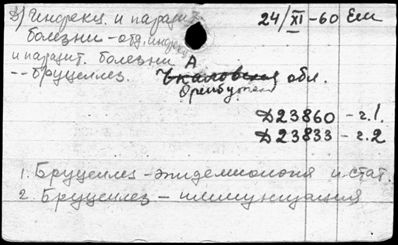 в) Инфекц. и паразит. 24/XI-60 Ем
болезни - отд. инфекц.
и паразит. болезни А
-- Бруцеллез. Чкаловская обл.
Оренбургская
Д23860 - г.1.
Д23833 - г.2
1. Бруцеллез - эпидемиология и стат.
2. Бруцеллез - иммунизация